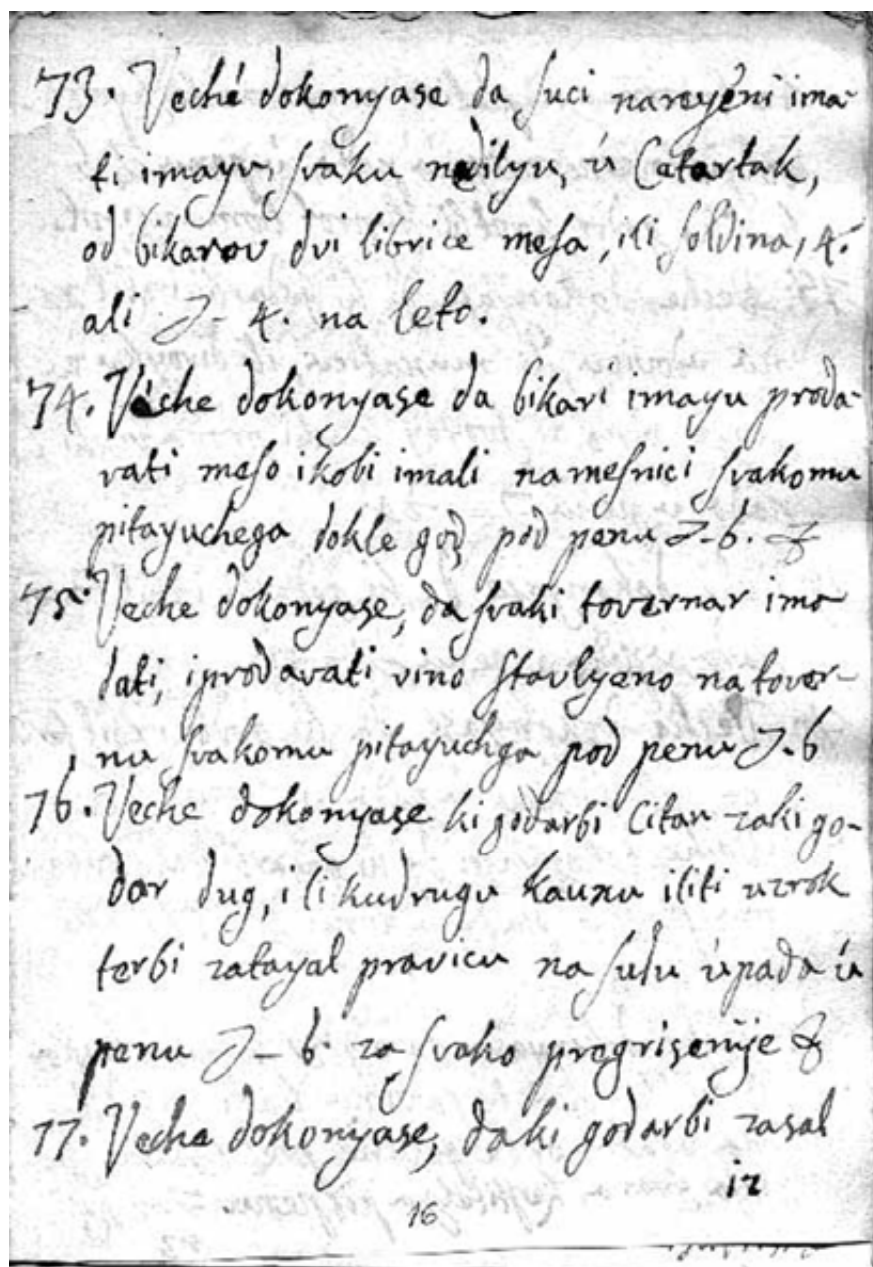 73. Veché dokonyase da suci nareyeni ima-
ti imayu, svaku nedilyu, ú Cetartak,
od bikarov dvi librice mesa, ili soldina, 4.
ali 4. na leto.
74. Veche dokonyase da bikari imayu proda-
vati meso i kobi imali na mesnici svakomu
pitayuchega dokle god pod penu - b. &
75. Veche dokonyase, da svaki tovernar imo
dati, i prodavati vino stavlyeno na tover-
nu svakomu pitayuchga pod penu - b
76. Veche dokonyase ki godarbi Citan zaki go-
dar dug, ili ku drugu kaunu iliti uzrok
terbi zatayal pravicu na sudu úpada ú
penu - b. za svako pregrisenije &
77. Veche dokonyase, daki godarbi zasal
iz
16